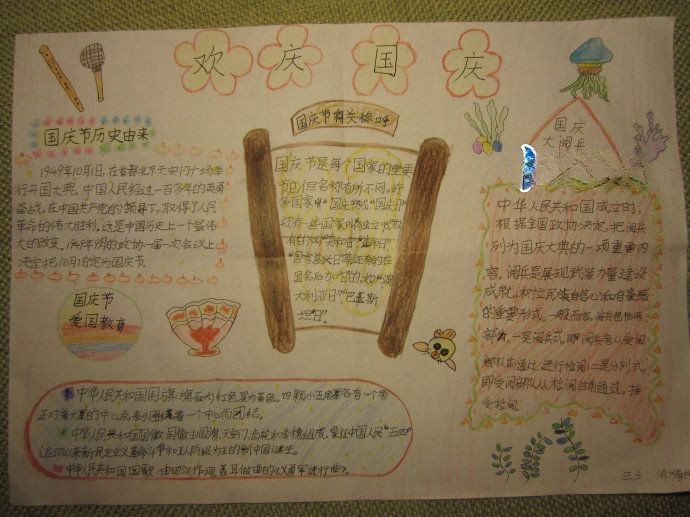 欢庆国庆
国庆节历史由来
1949年10月1日,在首都北京天安门广场举
行开国大典,中国人民经过一百多年的英勇
奋战,在中国共产党的领导下,取得了人民
革命的伟大胜利,这是中国历史上一个最伟
大的改变。1949年9月的政协一届一次会议上
决定把10月1日定为国庆节。
国庆节
爱国教育
国庆节有关称呼
国庆节是每个国家的重要
节日,但名称有所不同。许
多国家叫“国庆节”或“国庆日”
还有一些国家叫“独立节”也
有的叫“共和日”“革命日”
“国家复兴日等还有的在
国名后加“日”的,如“澳
大利亚日”“巴基斯
坦日”。
国庆
大阅兵
中华人民共和国成立时,
根据全国政协决定,把阅兵
列为国庆大典的一项重要内
容。阅兵是展现武装力量建设
成就,树立民族自信心和自豪感
的重要形式,一般而言,阅兵包括两
部有,一是阅兵式,即阅兵者从受阅
部队前通过,进行检阅;二是分列式,
即受阅部队从检阅台前通过,接
受检阅
中华人民共和国国旗:旗面为红色,星为黄色。四颗小五角星各有一个角
正对着大星的中心点,表示围绕着一个中心而团结。
中华人民共和国国徽:国徽由国旗、天安门、齿轮和麦穗组成,象征中国人民“五四”
运动以来新民主主义革命斗争和工人阶级为主的新中国诞生。
中华人民共和国国歌:由田汉作词,聂耳做曲的《义勇军进行曲》。
三3